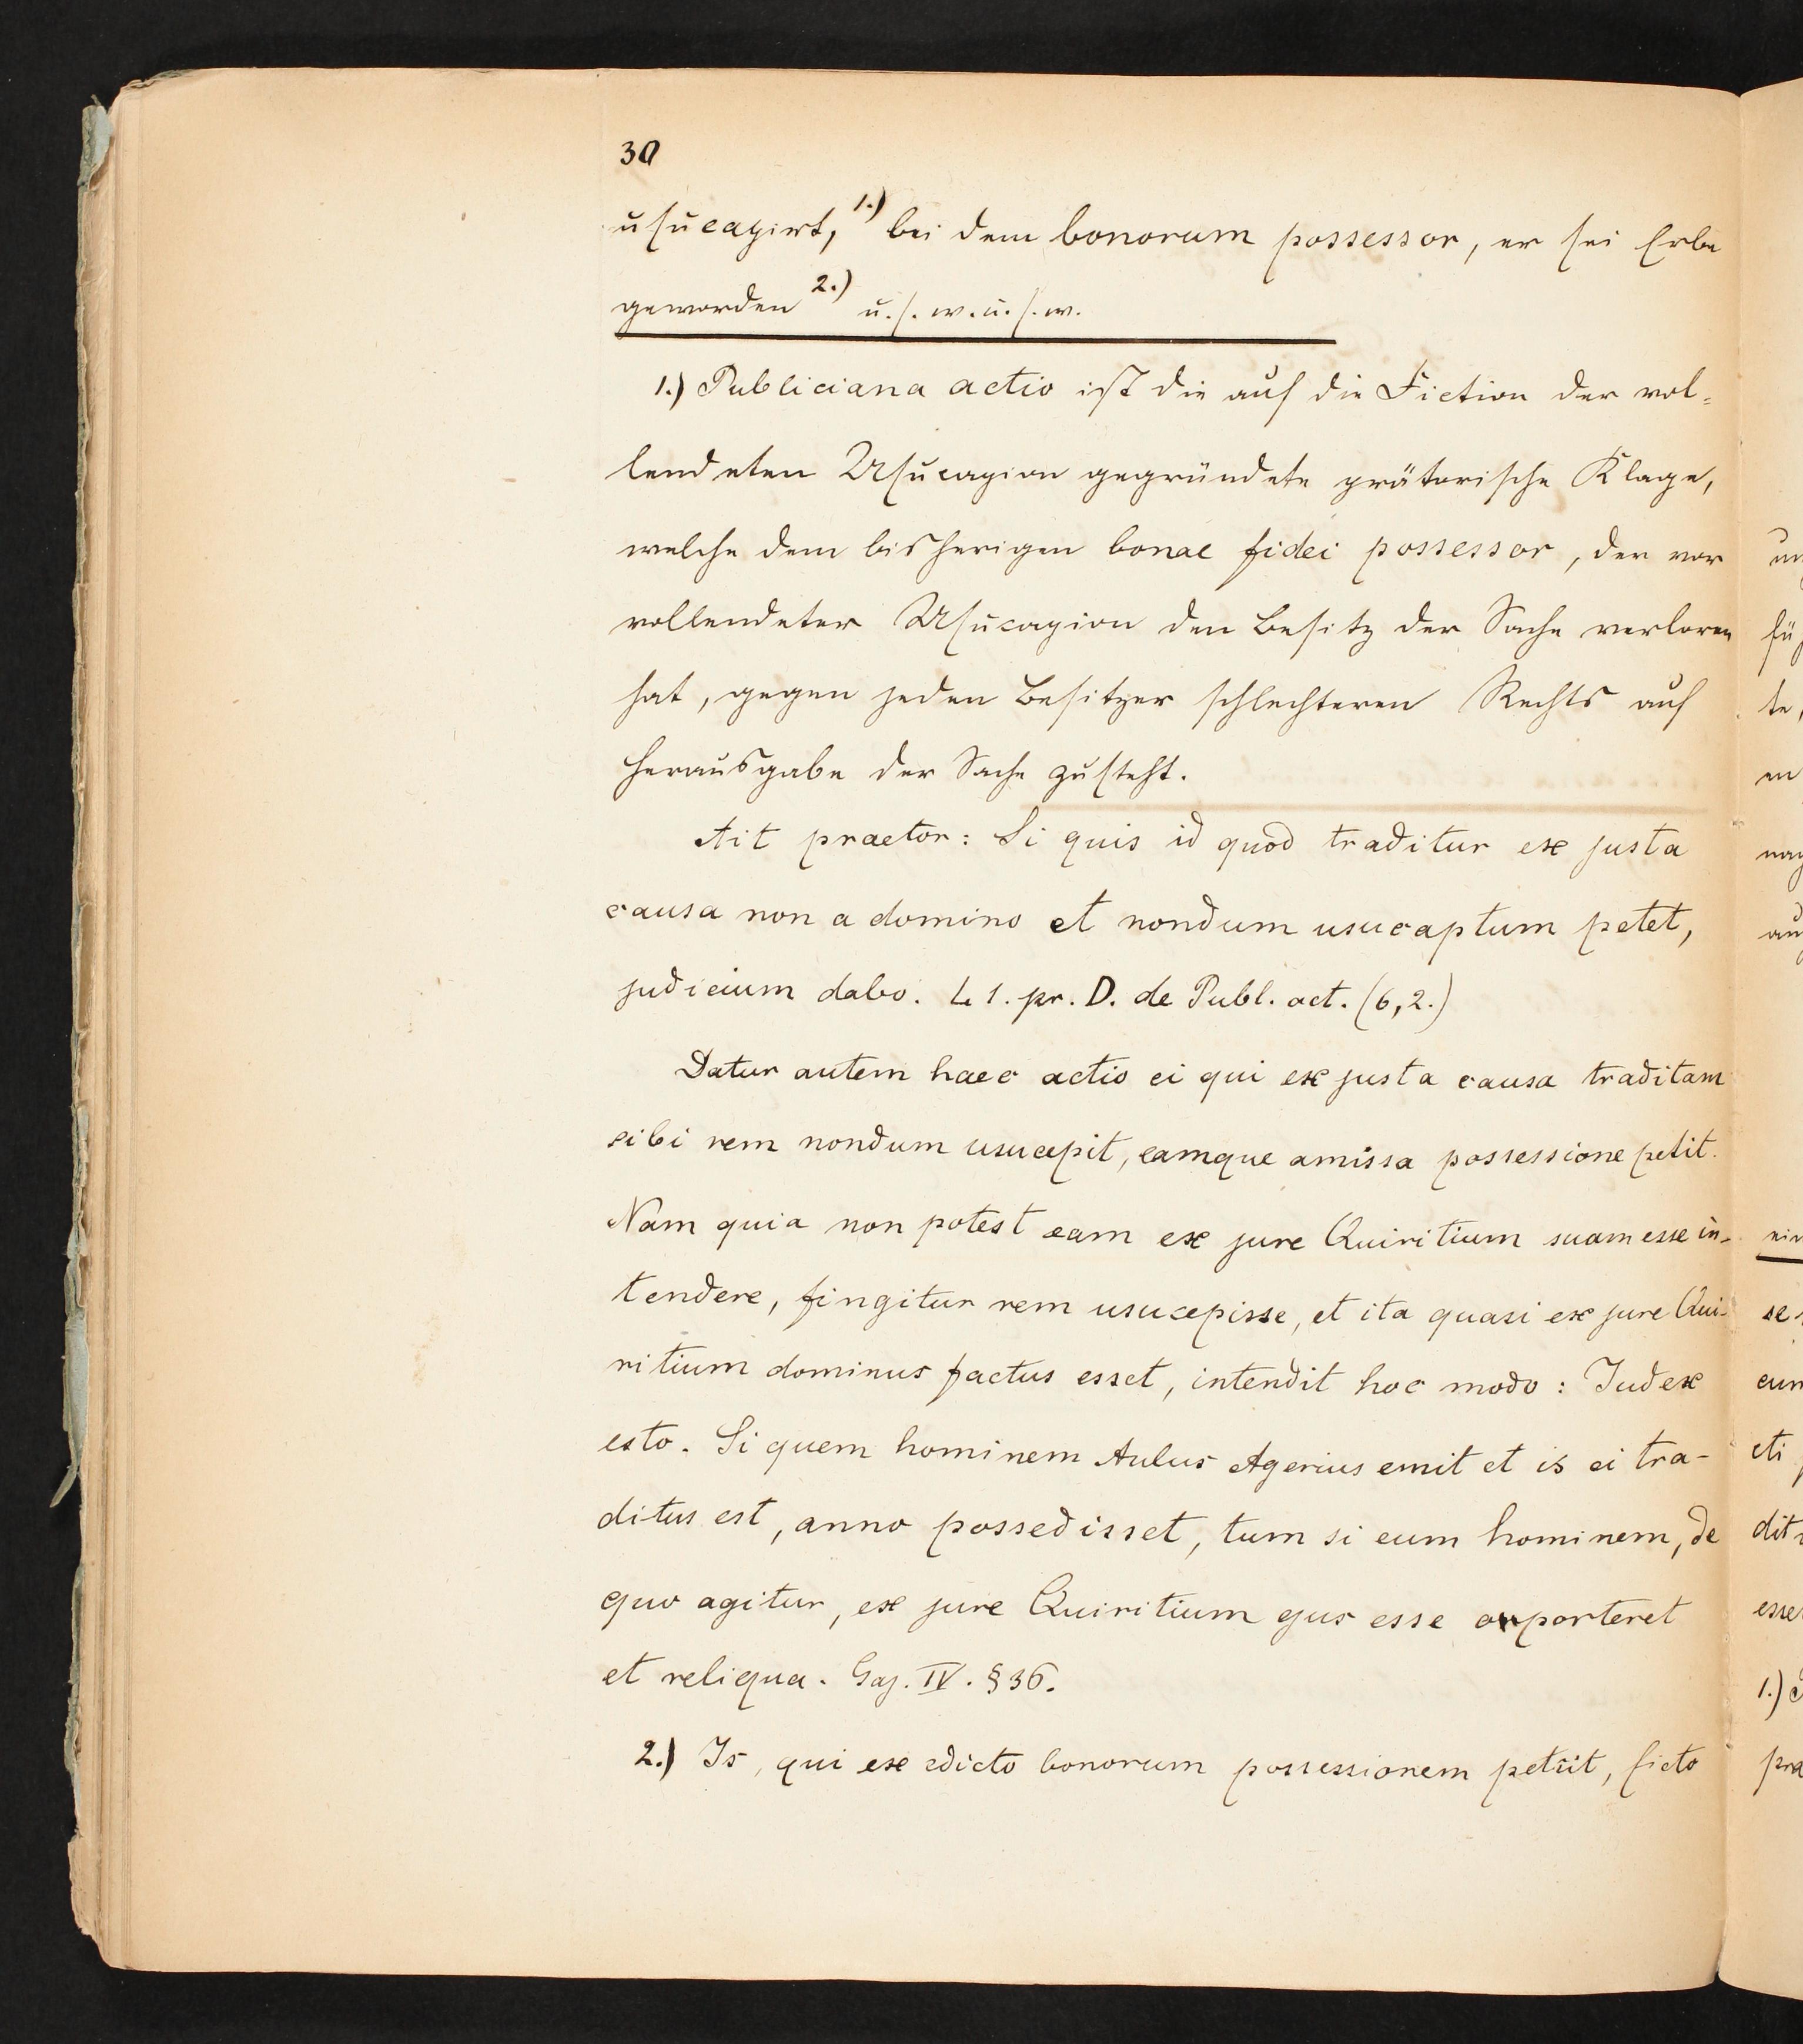 30
usucapirt, 1.) bei dem bonorum possessor, er sei Erbe
geworden 2.) u. s. w. u. s. w.
1.) Publiciana actio ist die auf die Fiction der vol=
lendeten Usucapion gegründete prätorische Klage,
welche dem bisherigen bonae fidei possessor, der vor
vollendeter Usucapion den Besitz der Sache verloren
hat, gegen jeden Besitzer schlechteren Rechts auf
Herausgabe der Sache zusteht.
Ait praetor: Si quis id quod traditur ex justa
causa non a domino et nondum usucaptum petet,
judicium dabo. L 1. pr. D. de Publ. act. (6,2.)
Datur autem haec actio ei qui ex justa causa traditam
sibi rem nondum usucepit, eamque amissa possessione petit.
Nam quia non potest eam ex jure Quiritium suam esse in-
tendere, fingitur rem usucepisse, et ita quasi ex jure Qui-
ritium dominus factus esset, intendit hoc modo: Judex
esto. Si quem hominem Aulus Agerius emit et is ei tra-
ditus est, anno possedisset, tum si eum hominem, de
quo agitur, ex jure Quiritium ejus esse oporteret
et reliqua. Gaj. IV. § 36.
2.) Is, qui ex edicto bonorum possessionem petiit, ficto